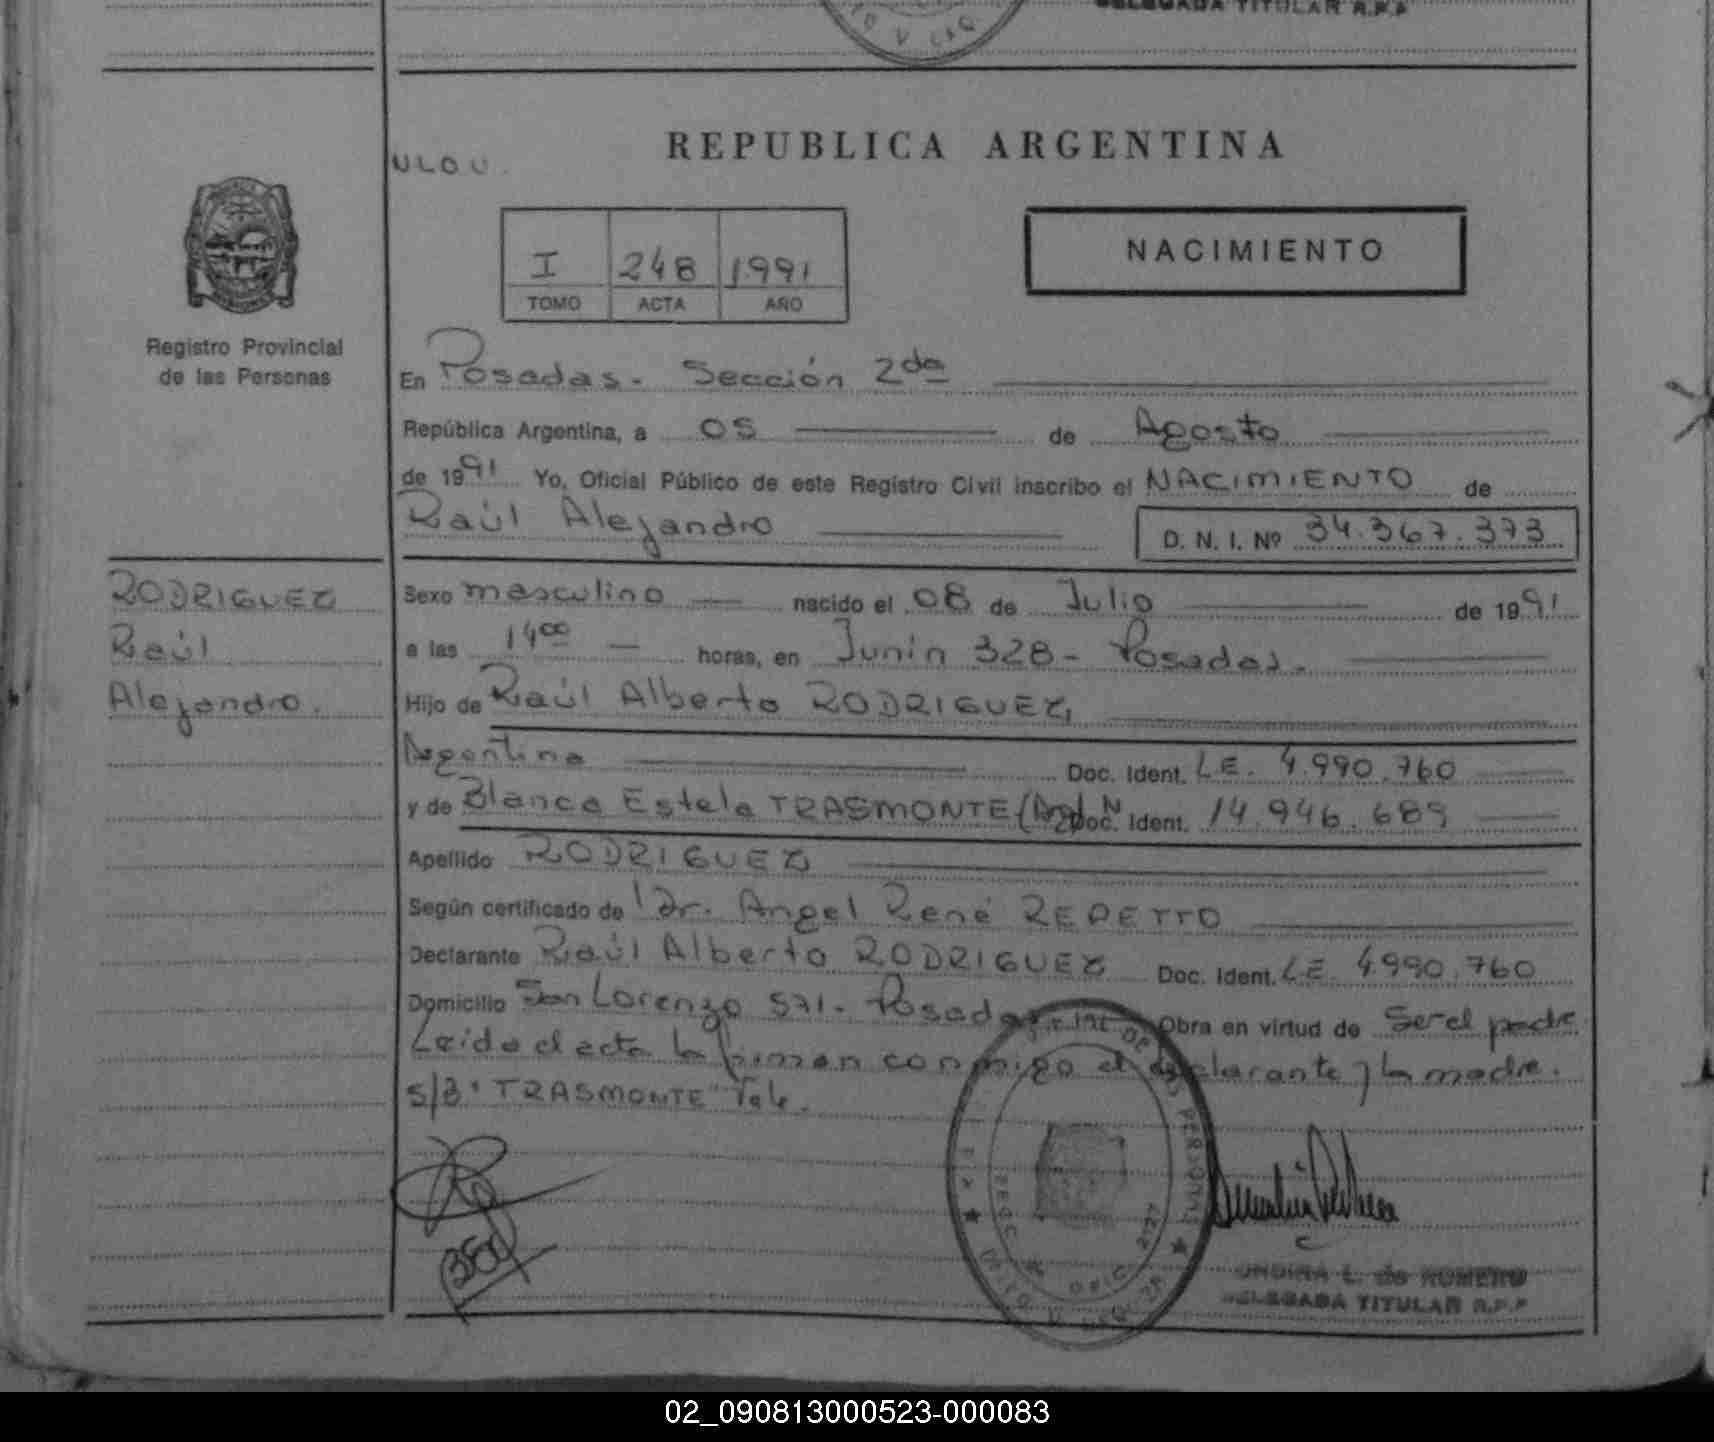 DELEGADA TITULAR R.P.P
REPUBLICA ARGENTINA
I 248 1991
TOMO ACTA AÑO
NACIMIENTO
Registro Provincial
de las Personas
En Posadas. Sección 2da
República Argentina, a 05 de Agosto
de 1991 Yo, Oficial Público de este Registro Civil inscribo el NACIMIENTO de
Raúl Alejandro D. N. I. Nº 34.367.373
RODRIGUEZ
Raúl
Alejandro.
Sexo masculino nacido el 08 de Julio de 1991
a las 14 00 horas, en Junín 328 - Posadas.
Hijo de Raúl Alberto RODRIGUEZ,
Argentina Doc. Ident. L.E. 4.990.760
y de Blanca Estela TRASMONTE (Arg) Doc. Ident. 14.946.689
Apellido RODRIGUEZ
Según certificado de Dr. Angel René REPETTO
Declarante Raúl Alberto RODRIGUEZ Doc. Ident. L.E. 4.990.760
Domicilio San Lorenzo 571 - Posadas Obra en virtud de Ser el padre.
Leída el acta la firman conmigo el declarante y la madre.
S/B "TRASMONTE" Vale.
ONDINA L. de ROMERO
DELEGADA TITULAR R.P.P
02_090813000523-000083